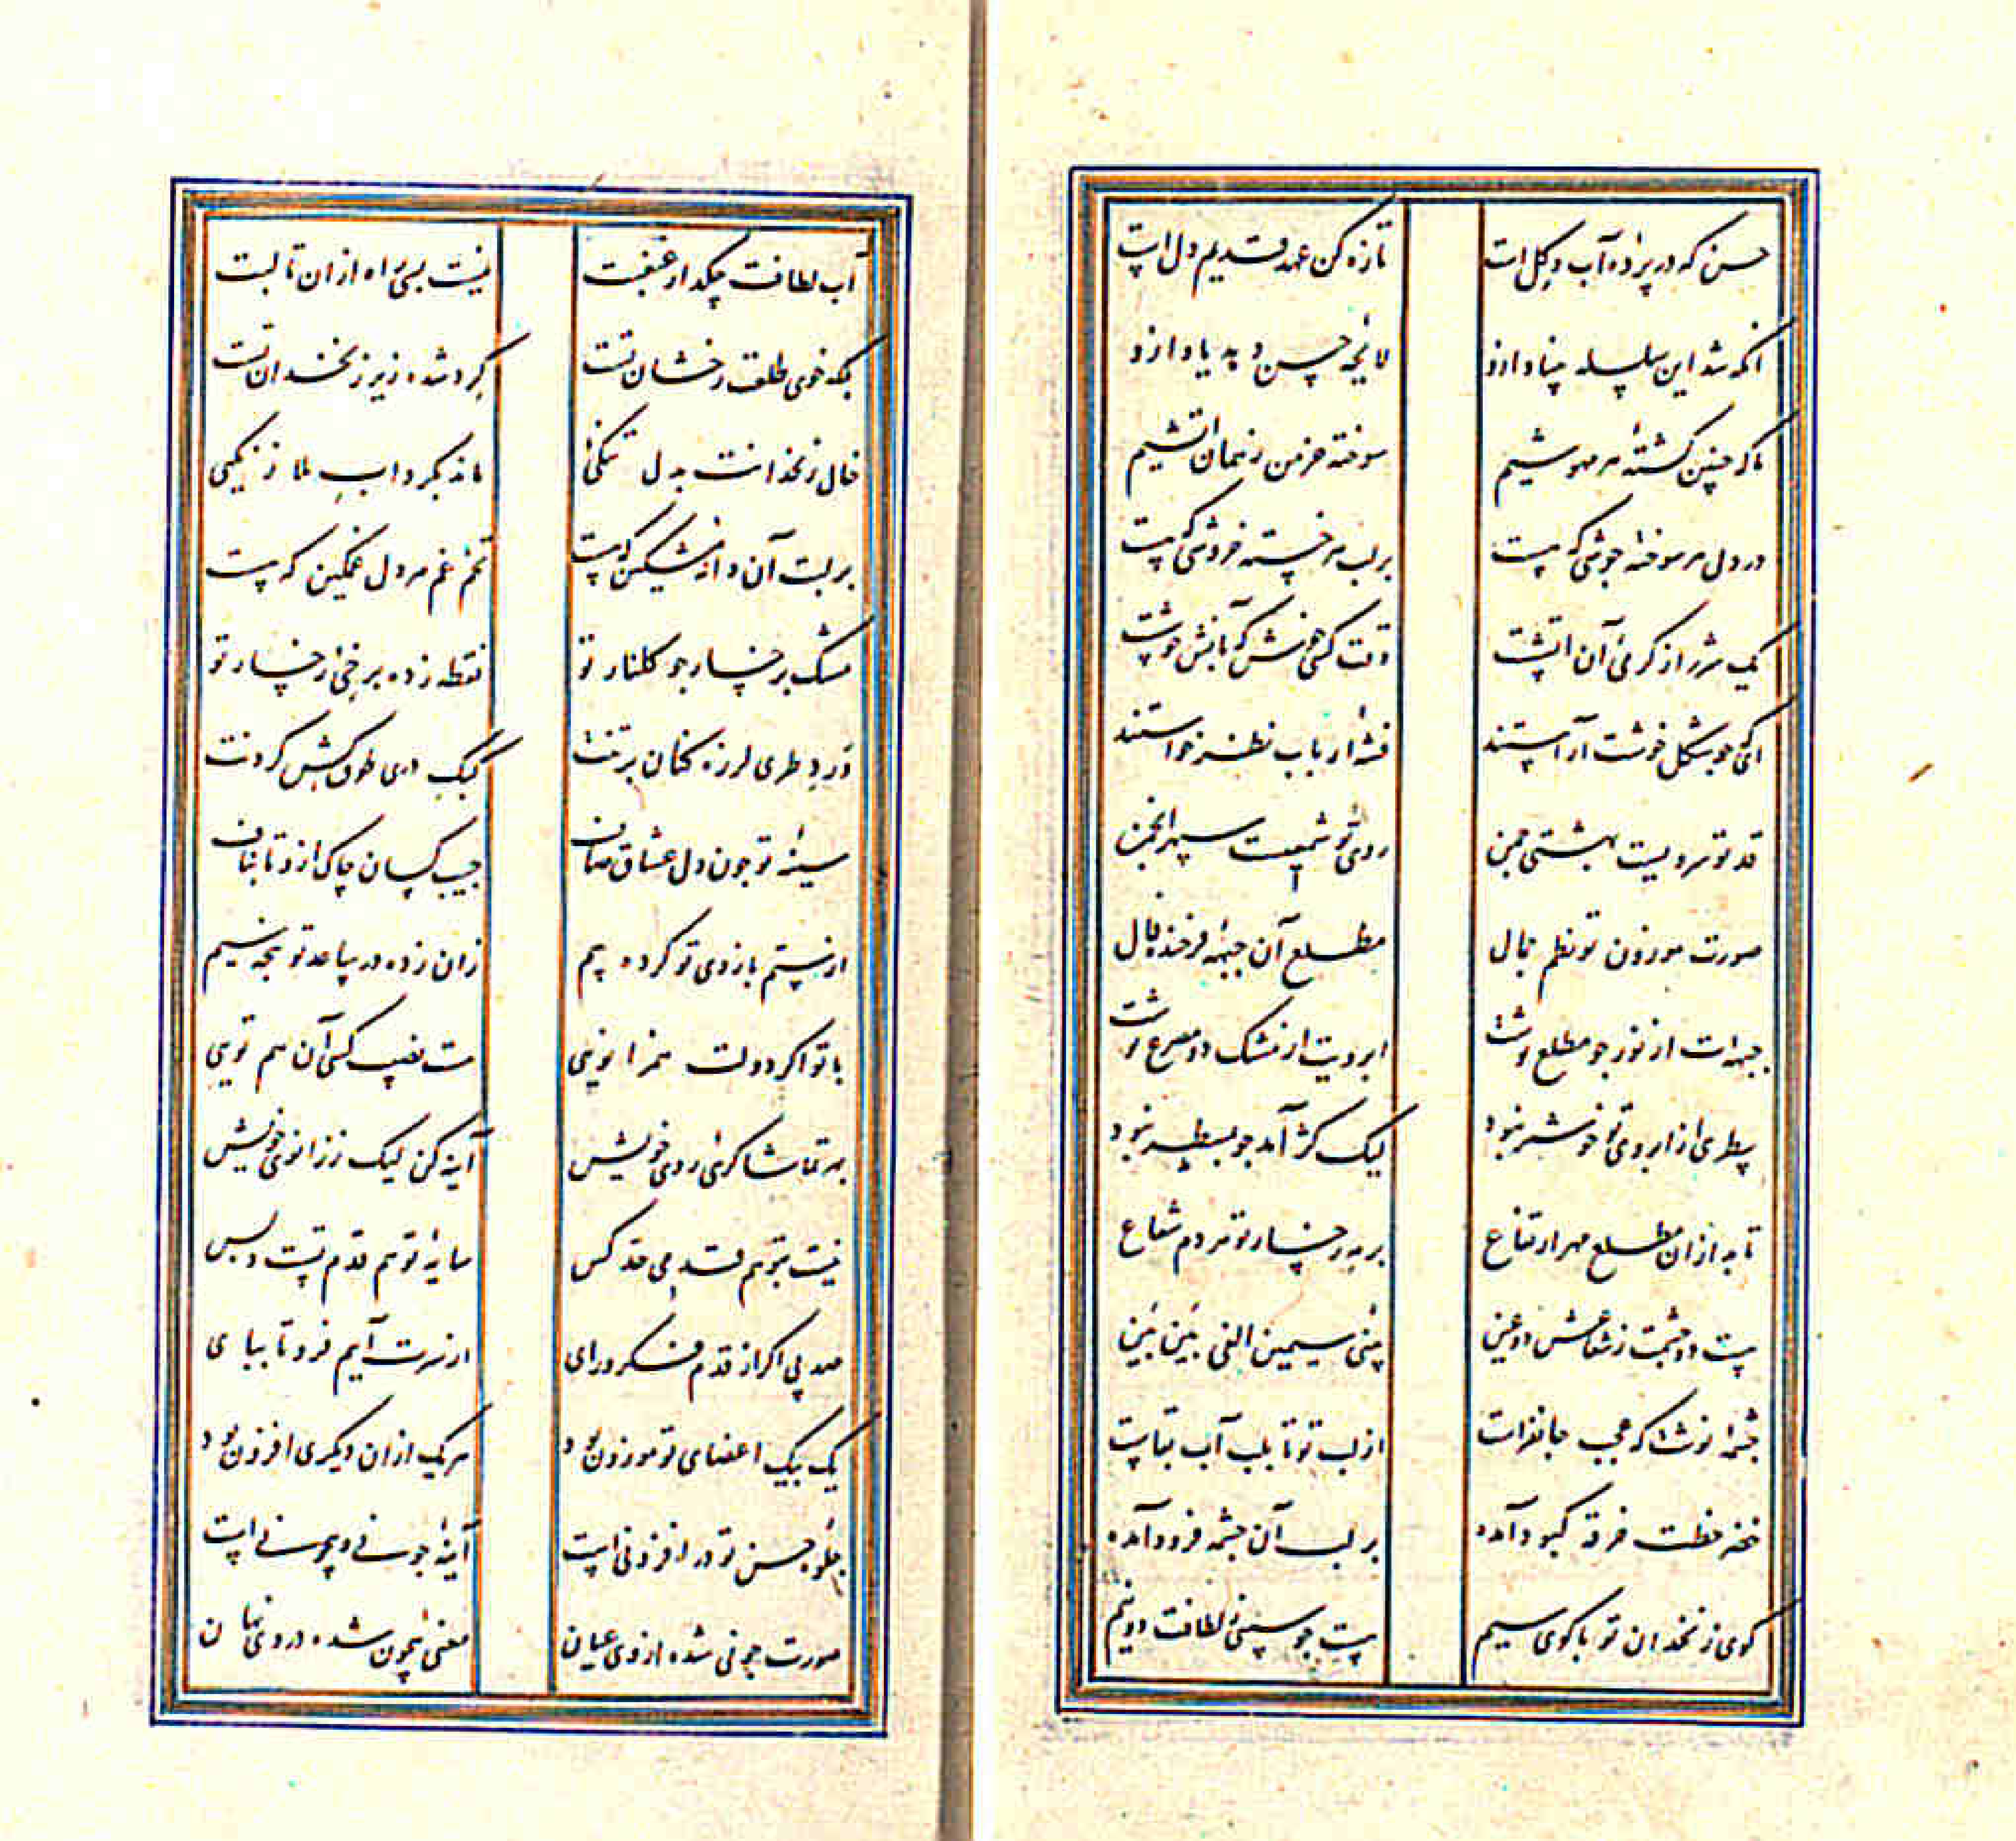 حسن که در پرده آب و گل است
تازه کن عهد قدیم دل است
آنکه شد این سلسله بنیاد ازو
لایحه حسن دهد یاد ازو
ما که چنین کشته هر مهوشیم
سوخته خرمن ز همان آتشیم
در دل هر سوخته جوشی که هست
بر لب هر خسته خروشی که هست
یک شرر از گرمی آن آتشست
وقت کسی خوش که بآتش خوشست
ای که چو شکل خوشت آراستند
فتنه ارباب نظر خواستند
قد تو سرویست بهشتی چمن
روی تو شمعیست سپهر انجمن
صورت موزون تو نظم جمال
مطلع آن جبهه فرخنده فال
جبهه‌ات از نور چو مطلع نوشت
ابرویت از مشک دو مصرع نوشت
سطری از ابروی تو خوشتر نبود
لیک کژ آمد چو بمسطر نبود
تا به ازان مطلع مهر ارتفاع
بر مه رخسار تو هر دم شعاع
هست دو چشمت ز شعاعش دو عین
بینی سیمین الفی بین بین
چشمه نوشت که عجب جانفزاست
از لب تو تا بلب آب بقاست
خضر خطت خرقه کبود آمده
بر لب آن چشمه فرود آمده
گوی زنخدان تو با گوی سیم
هست چو سیبی ز لطافت دو نیم
آب لطافت چکد از غبغبت
نیست بسی راه ازان تا لبت
بلکه خوی طلعت رخشان تست
گرد شده زیر زنخدان تست
خال زنخدانت بدل تنگیی
مانده بگرداب بلا زنگیی
بر لبت آن دانه مشکین که هست
تخم غم هر دل غمگین که هست
مشک بر رخسار چو گلنار تو
نقطه زده بر خی رخسار تو
دزد طری لرزه کنان بر تنت
کبک دری طوق کش گردنت
سینه تو چون دل عشاق صاف
جیب کسان چاک ازو تا بناف
از ستم بازوی تو کرده بیم
زان زده در ساعد تو پنجه سیم
با تو اگر دولت همزانویی
هست نصیب کسی آن هم تویی
بهر تماشاگری روی خویش
آینه کن لیک ز زانوی خویش
نیست بتو هم قدمی حد کس
سایه تو هم قدم تست و بس
صد پی اگر از قدم فکر و رای
از سرت آیم فرو تا بپای
یک بیک اعضای تو موزون بود
هر یک ازان دیگری افزون بود
جلوه حسن تو در افزونی است
آینه چونی و بیچونی است
صورت چونی شده از وی عیان
معنی بیچون شده در وی نهان